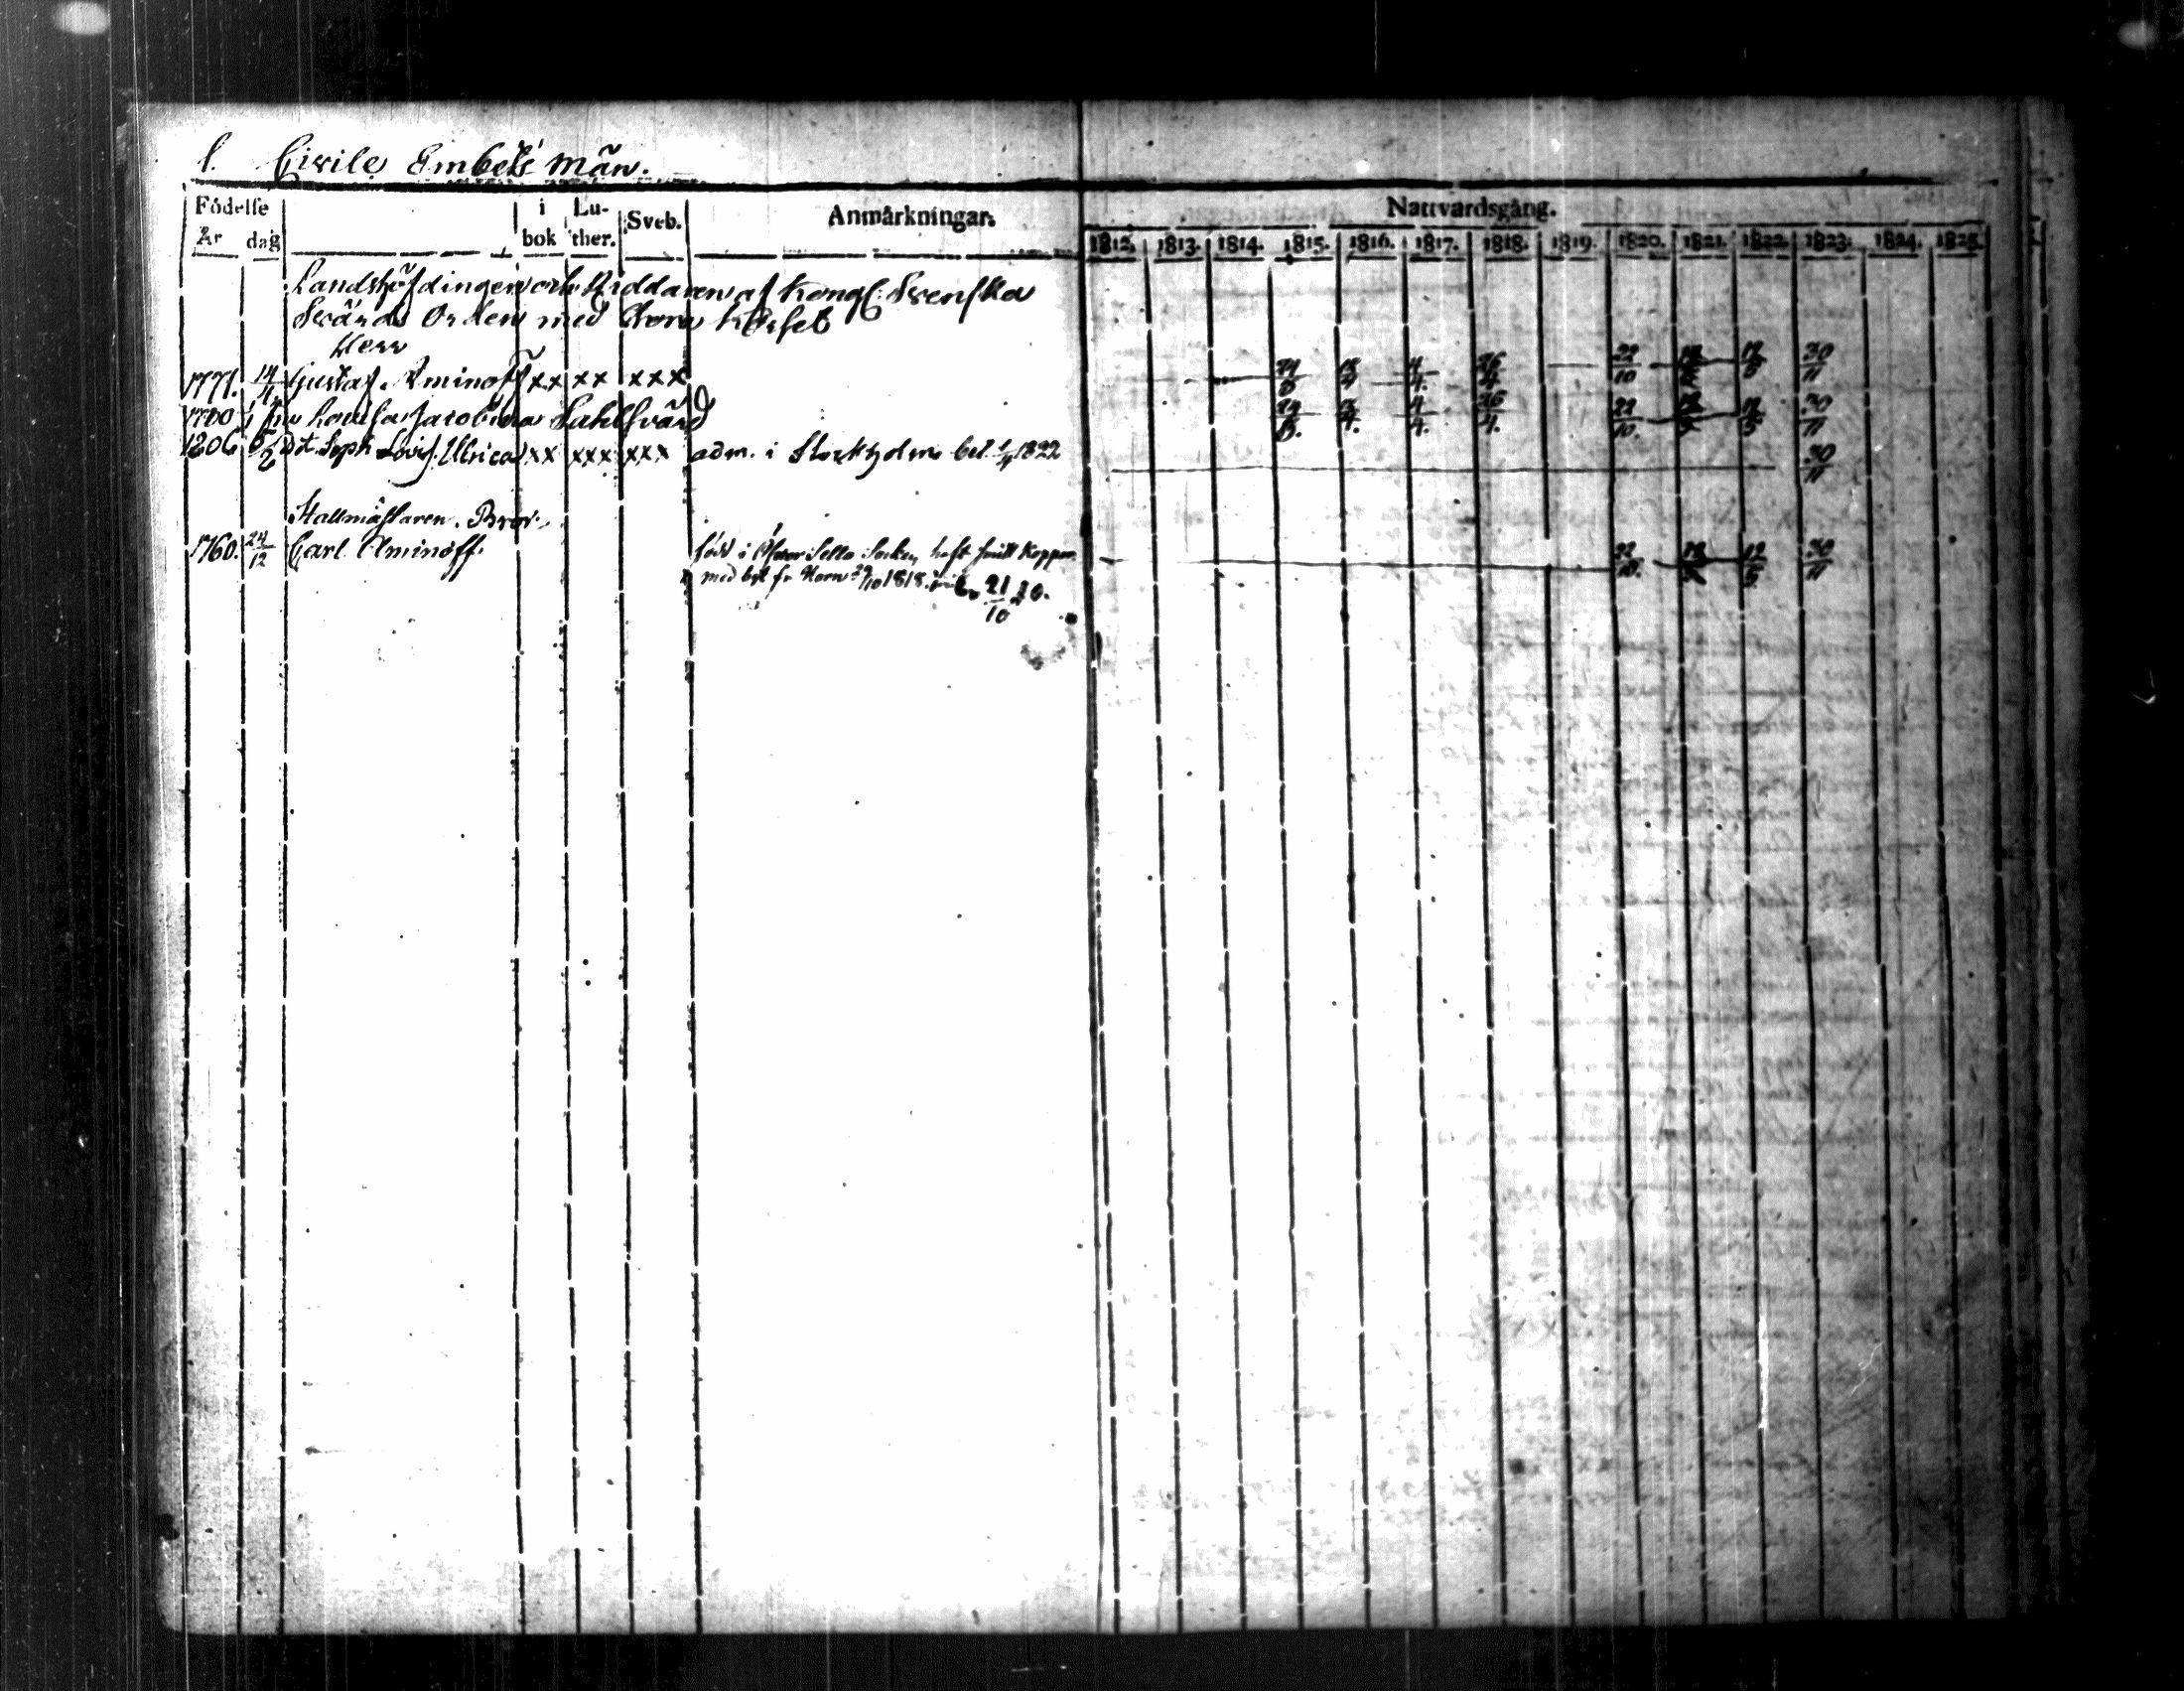 1. Civile Embets män.
Födelse
År dag
i bok
Luther.
Sveb.
Anmärkningar.
Nattvardsgång.
1812. 1813. 1814. 1815. 1816. 1817. 1818. 1819. 1820. 1821. 1822. 1823. 1824. 1825.
Landshöfdingen och Riddaren af Kongl. Svenska
Svärds Orden med Stora Korset
Herr
1771. 14/4. Gustaf Aminoff xx xx xxx 24/5 4/4. 26/4. 22/10 12/5 30/11
Fru Lovisa Jacobina Sahlfvärd 24/5. 4/4. 26/4. 22/10. 12/5 30/11
1806 Dot. Soph. Lovis. Ulrica xx xxx xxx adm. i Stockholm bet. 1822 30/11
Stallmästaren. Bror.
1760. 24/12 Carl Aminoff. född i Socken, haft Koppor 22/10. 12/5 30/11
med bet fr. Horn 1818. 21/10 20.